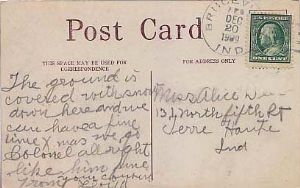 Post Card
THIS SPACE MAY BE USED FOR CORRESPONDENCE
FOR ADDRESS ONLY
DEC
20
IND.
The ground is
covered with snow
down here and we
can have a fine
time Xmas. we go
Colonel all right
like him fine
from your
Miss Alice
134 North fifth St
Terre Haute
Ind